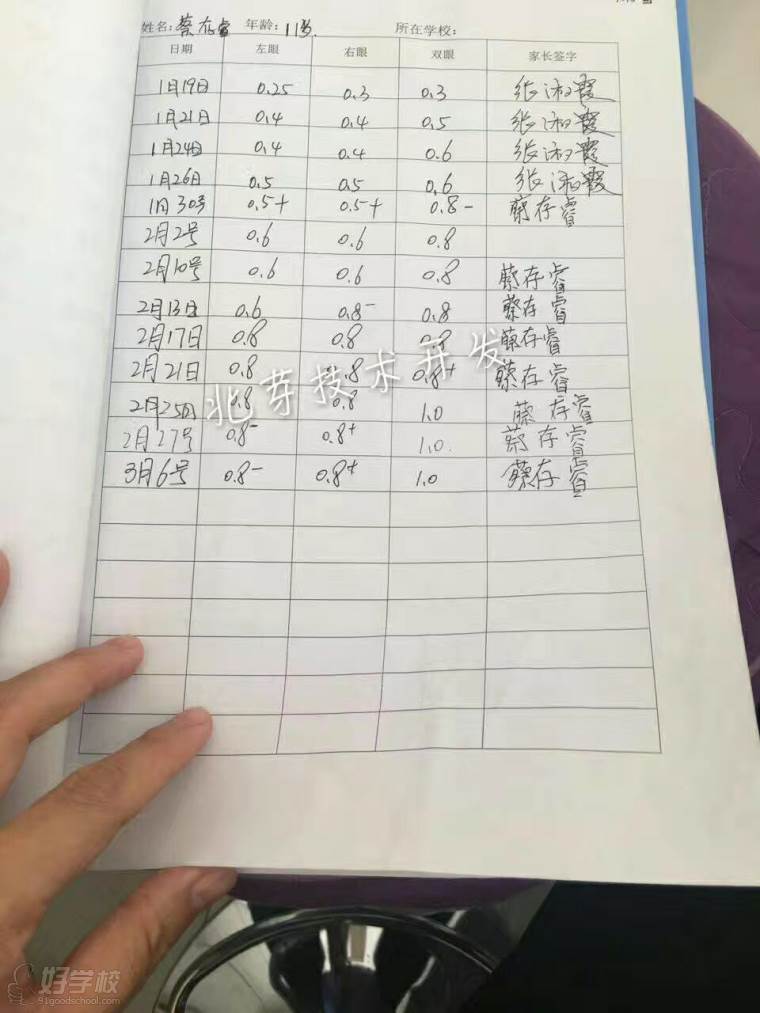 姓名:蔡存睿 年龄:11岁. 所在学校:
日期 左眼 右眼 双眼 家长签字
1月19日 0.25 0.3 0.3 张淑霞
1月21日 0.4 0.4 0.5 张淑霞
1月24日 0.4 0.4 0.6 张淑霞
1月26日 0.5 0.5 0.6 张淑霞
1月30号 0.5+ 0.5+ 0.8- 蔡存睿
2月2号 0.6 0.6 0.8
2月10号 0.6 0.6 0.8 蔡存睿
2月13日 0.6 0.8- 0.8 蔡存睿
2月17日 0.8 0.8 0.8 蔡存睿
2月21日 0.8 0.8 0.8+ 蔡存睿
北芽技术开发
2月25日 0.8 0.8 1.0 蔡存睿
2月27号 0.8- 0.8+ 1.0. 蔡存睿
3月6号 0.8- 0.8+ 1.0 蔡存睿
好学校
91goodschool.com